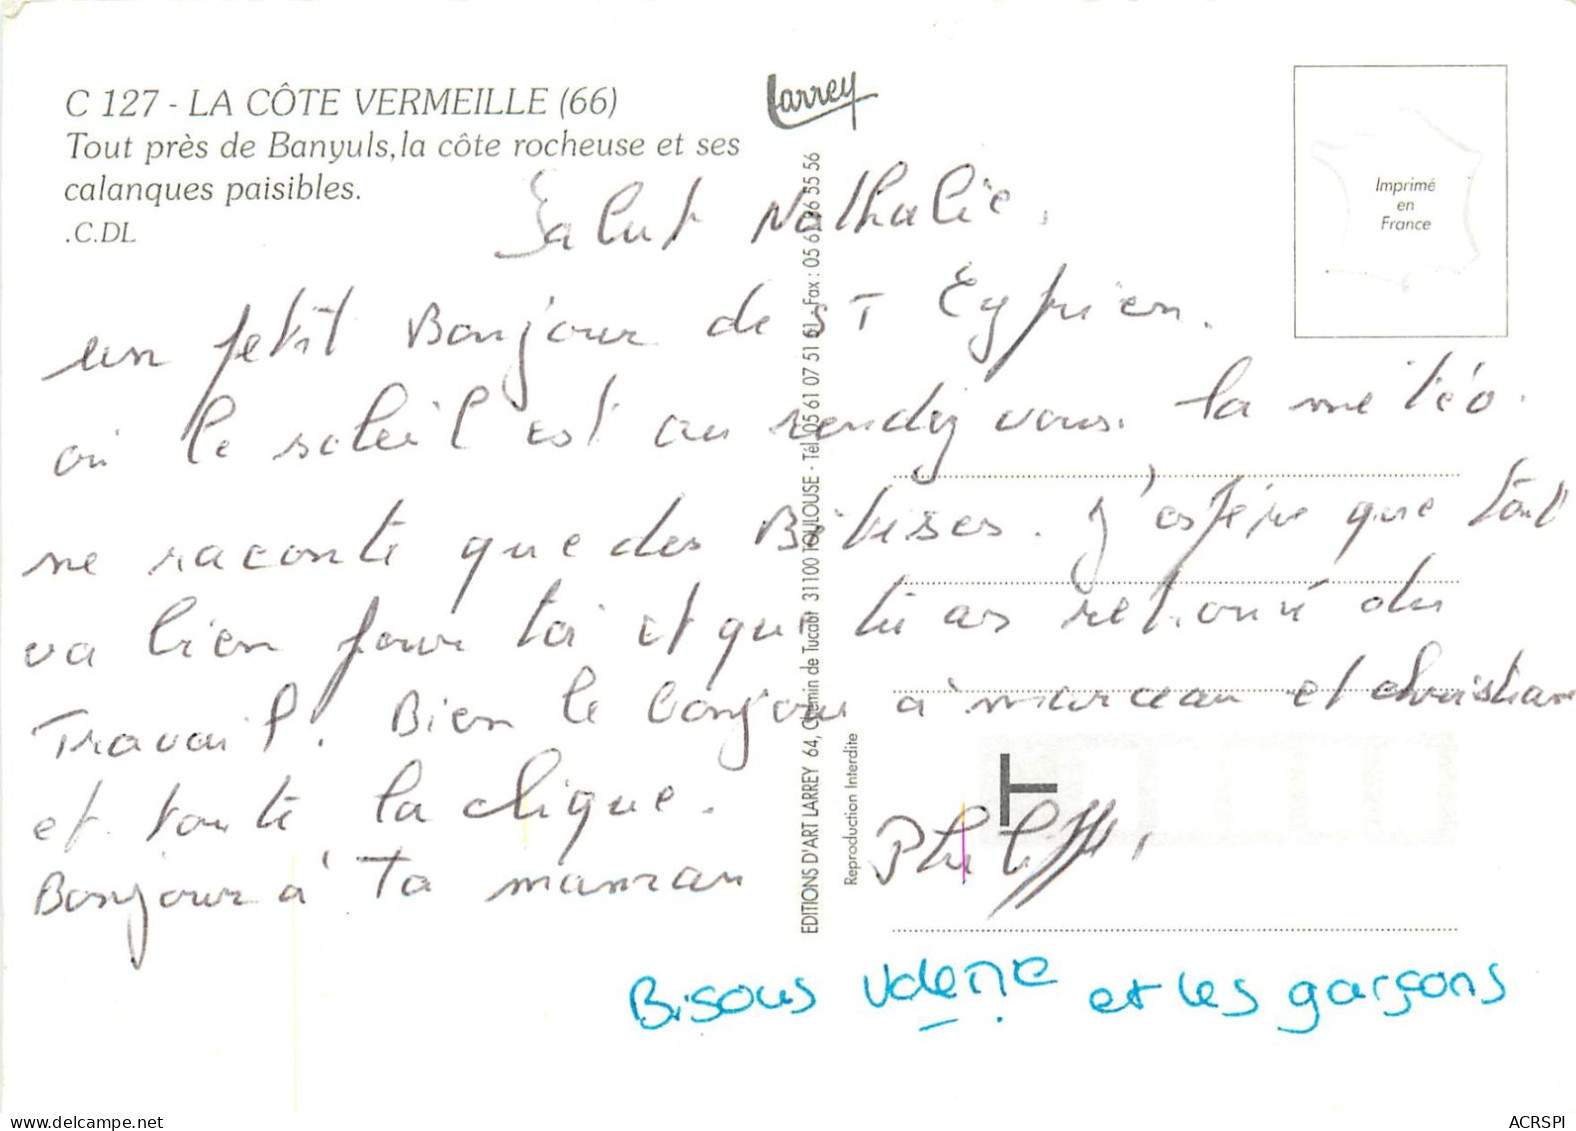 C 127 - LA CÔTE VERMEILLE (66)
Tout près de Banyuls,la côte rocheuse et ses
calanques paisibles.
.C.DL
Larrey
Imprimé
en
France
Salut Nathalie,
un petit Bonjour de ST Cyprien.
où le soleil est au rendez vous. La météo.
ne raconte que des Bêtises. J'espère que tout
va bien pour toi et que tu as retrouvé du
Travail. Bien le bonjour à marceau et christian
et toute la clique.
Bonjour à Ta maman
Philippe
Bisous Valérie et les garçons
EDITIONS D'ART LARREY 64, Chemin de Tucaut 31100 TOULOUSE - Tél. 05 61 07 51 61 - Fax : 05 61 96 55 56
Reproduction Interdite
ACRSPI